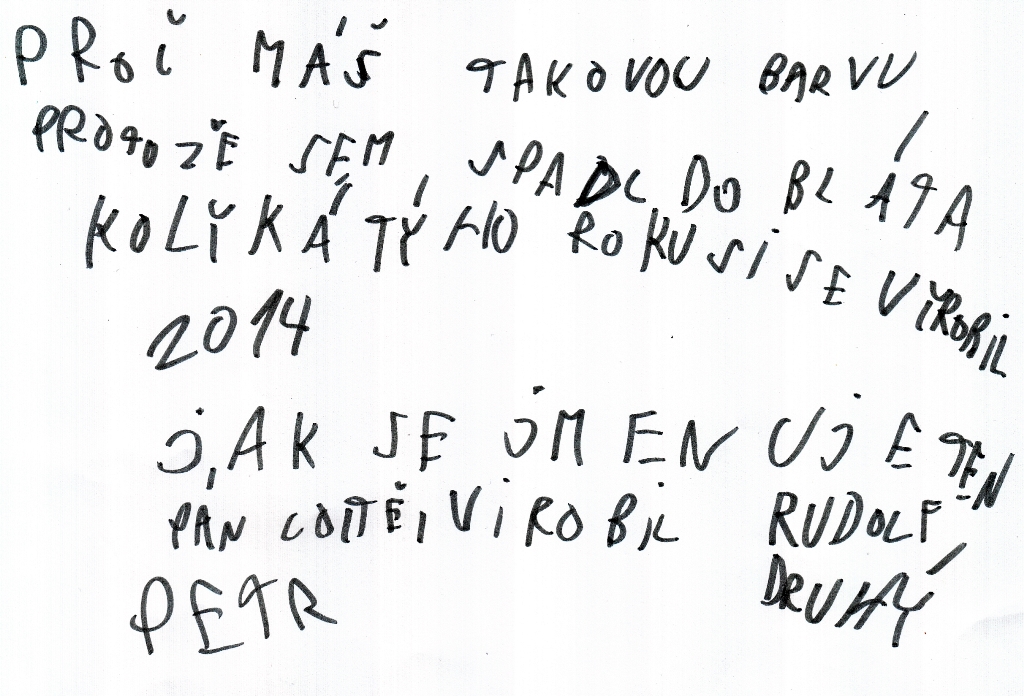 PROČ MÁŠ TAKOVOU BARVU
PROTOŽE SEM SPADL DO BLÁTA
KOLIKÁTÝHO ROKU SI SE VIROBIL
2014
JAK SE JMENUJE TEN
PÁN COTĚ VIROBIL RUDOLF
PETR DRUHÝ